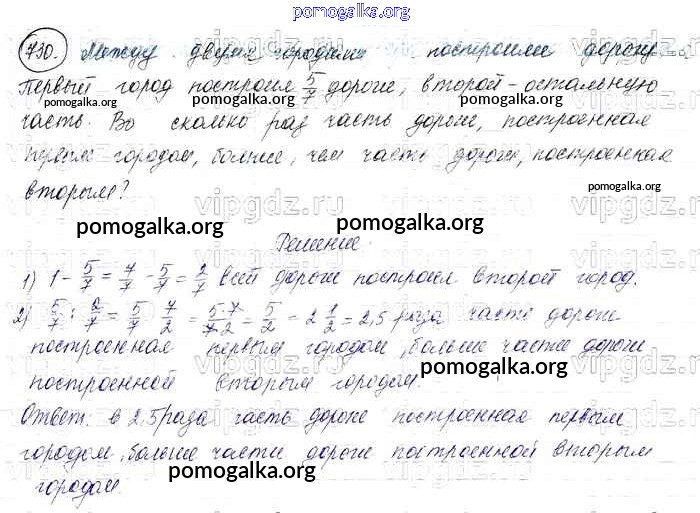 pomogalka.org
730. Между двумя городами построили дорогу.
Первый город построил 5/7 дороги, второй - остальную
pomogalka.org pomogalka.org pomogalka.org
часть. Во сколько раз часть дороги, построенная
первым городом, больше, чем часть дороги, построенная
вторым?
pomogalka.org
vipgdz.ru
pomogalka.org pomogalka.org
Решение.
1) 1 - 5/7 = 7/7 - 5/7 = 2/7 всей дороги построил второй город.
2) 5/7 : 2/7 = 5/7 · 7/2 = 5·7/7·2 = 5/2 = 2 1/2 = 2,5 раза часть дороги
построенная первым городом, больше части дороги
построенной вторым городом.
pomogalka.org
Ответ: в 2,5 раза часть дороги построенная первым
городом, больше части дороги построенной вторым
pomogalka.org
городом.
pomogalka.org